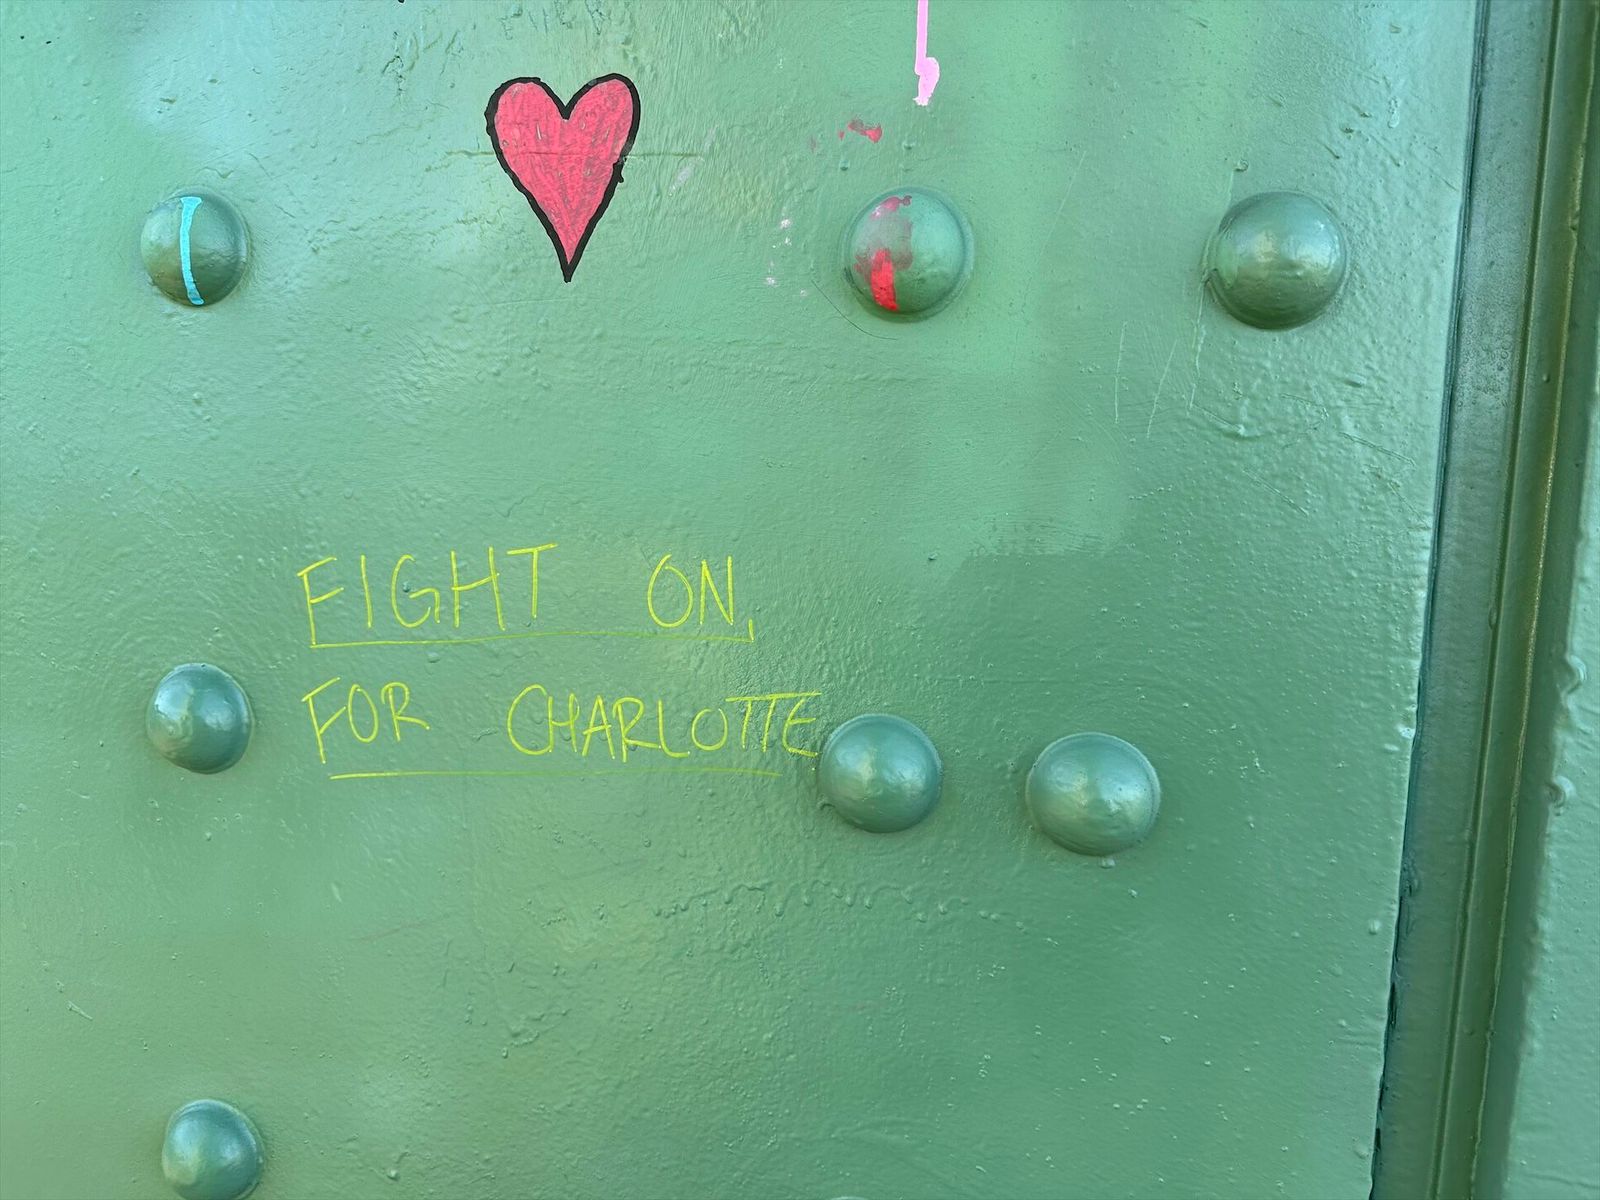 FIGHT ON,
FOR CHARLOTTE